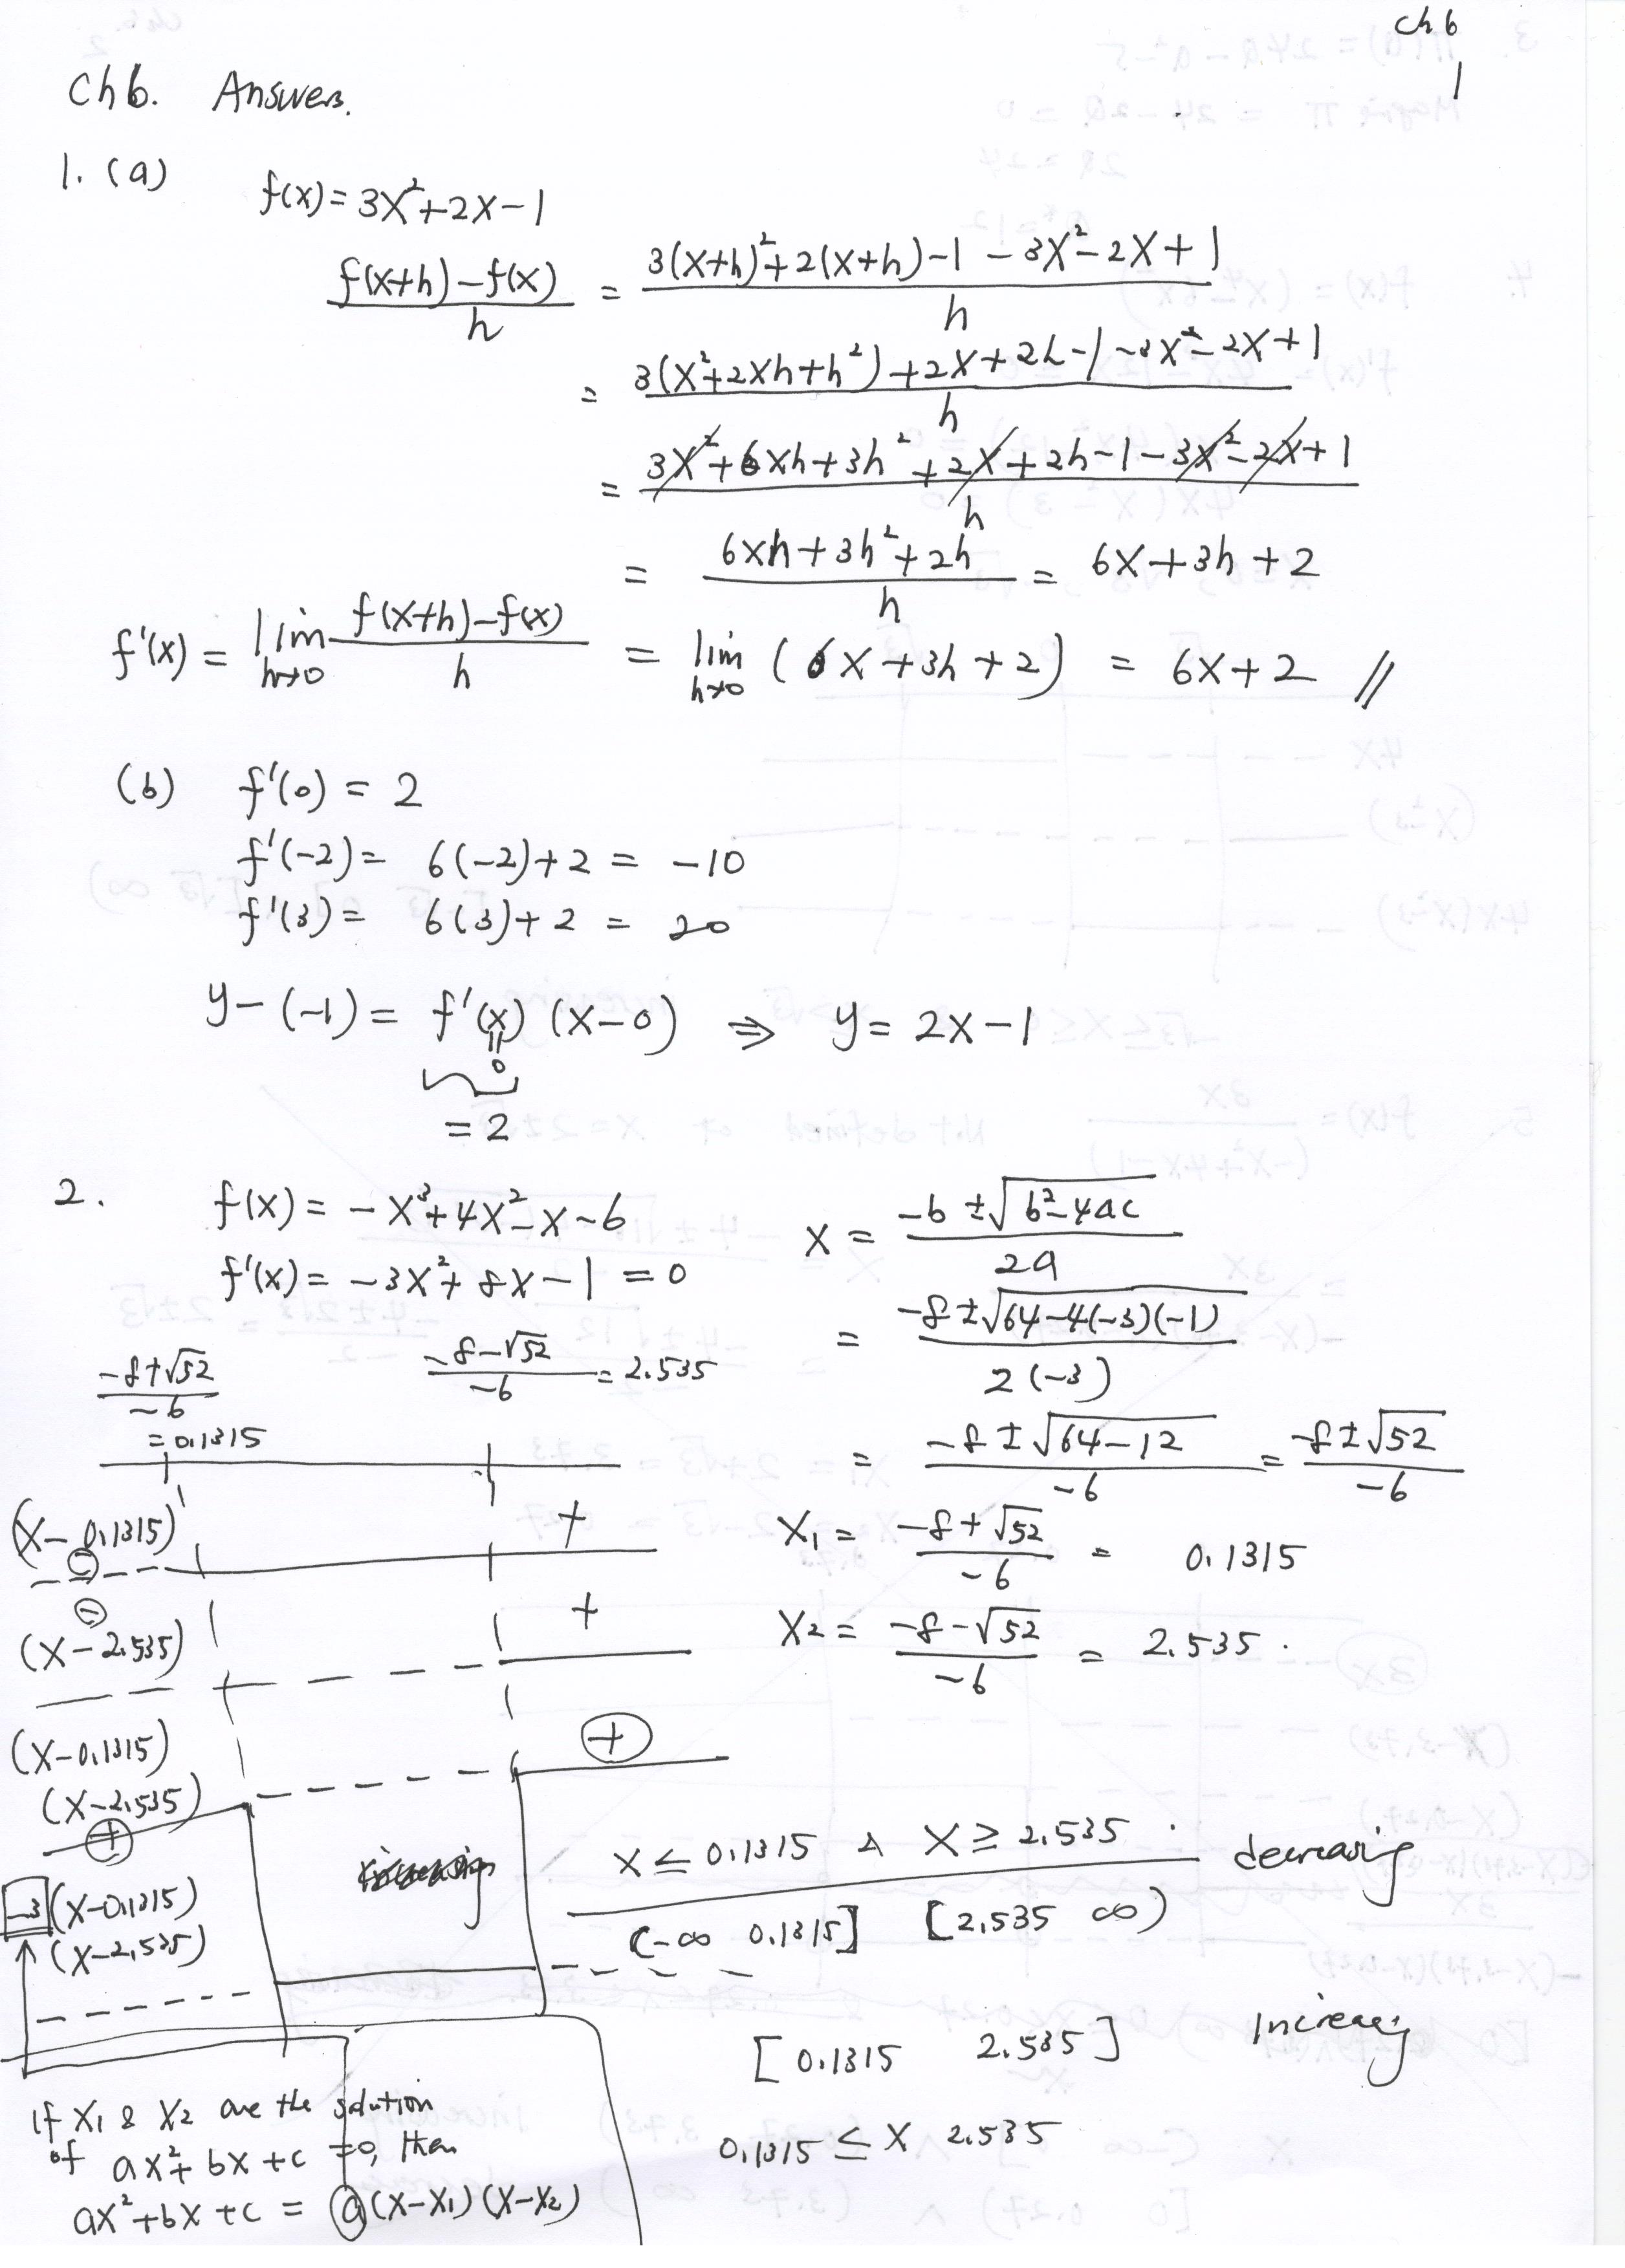 Ch 6
1
Ch 6. Answers.
1. (a) f(x) = 3x²+2x-1
(f(x+h)-f(x))/h = (3(x+h)²+2(x+h)-1-3x²-2x+1)/h
= (3(x²+2xh+h²)+2x+2h-1-3x²-2x+1)/h
= (3x²+6xh+3h²+2x+2h-1-3x²-2x+1)/h
= (6xh+3h²+2h)/h = 6x+3h+2
f'(x) = lim h→0 (f(x+h)-f(x))/h = lim h→0 (6x+3h+2) = 6x+2 //
(b) f'(0) = 2
f'(-2) = 6(-2)+2 = -10
f'(3) = 6(3)+2 = 20
y-(-1) = f'(x)(x-0) ⇒ y = 2x-1
= 0
= 2
2. f(x) = -x³+4x²-x-6
f'(x) = -3x²+8x-1 = 0
x = (-b±√(b²-4ac))/2a
= (-8±√(64-4(-3)(-1)))/2(-3)
= (-8±√(64-12))/-6 = (-8±√52)/-6
x₁ = (-8+√52)/-6 = 0.1315
x₂ = (-8-√52)/-6 = 2.535.
(-8+√52)/-6 = 0.1315
(-8-√52)/-6 = 2.535
(x-0.1315) ⊖ +
⊖ +
(x-2.535)
(x-0.1315) ⊕
(x-2.535)
⊕
-3(x-0.1315)
(x-2.535)
x ≤ 0.1315 & x ≥ 2.535. decreasing
(-∞ 0.1315] [2.535 ∞)
[0.1315 2.535] Increasing
0.1315 ≤ x 2.535
If x₁ & x₂ are the solution
of ax²+bx+c = 0, then
ax²+bx+c = a(x-x₁)(x-x₂)